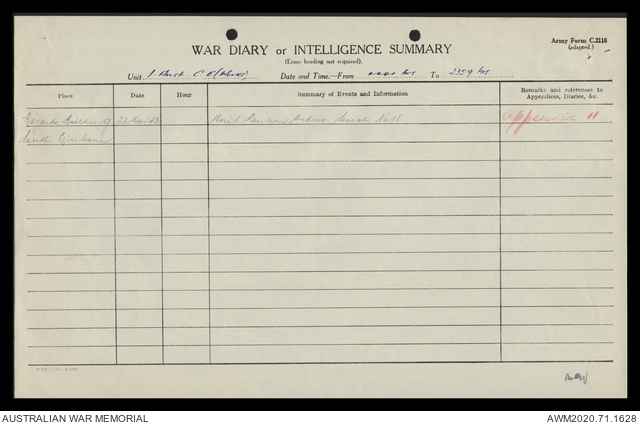 Army Form C.2118
(adapted.)
WAR DIARY or INTELLIGENCE SUMMARY
(Erase heading not required).
Unit 1 Aust. C E (Works) Date and Time.—From 0001 hrs To 2359 hrs
Place Date Hour Summary of Events and Information Remarks and references to
Appendices, Diaries, &c.
Building 22 Mar 43 Unit Routine Orders Serial No 15 Appendix 11
South Brisbane
AUSTRALIAN WAR MEMORIAL AWM2020.71.1628